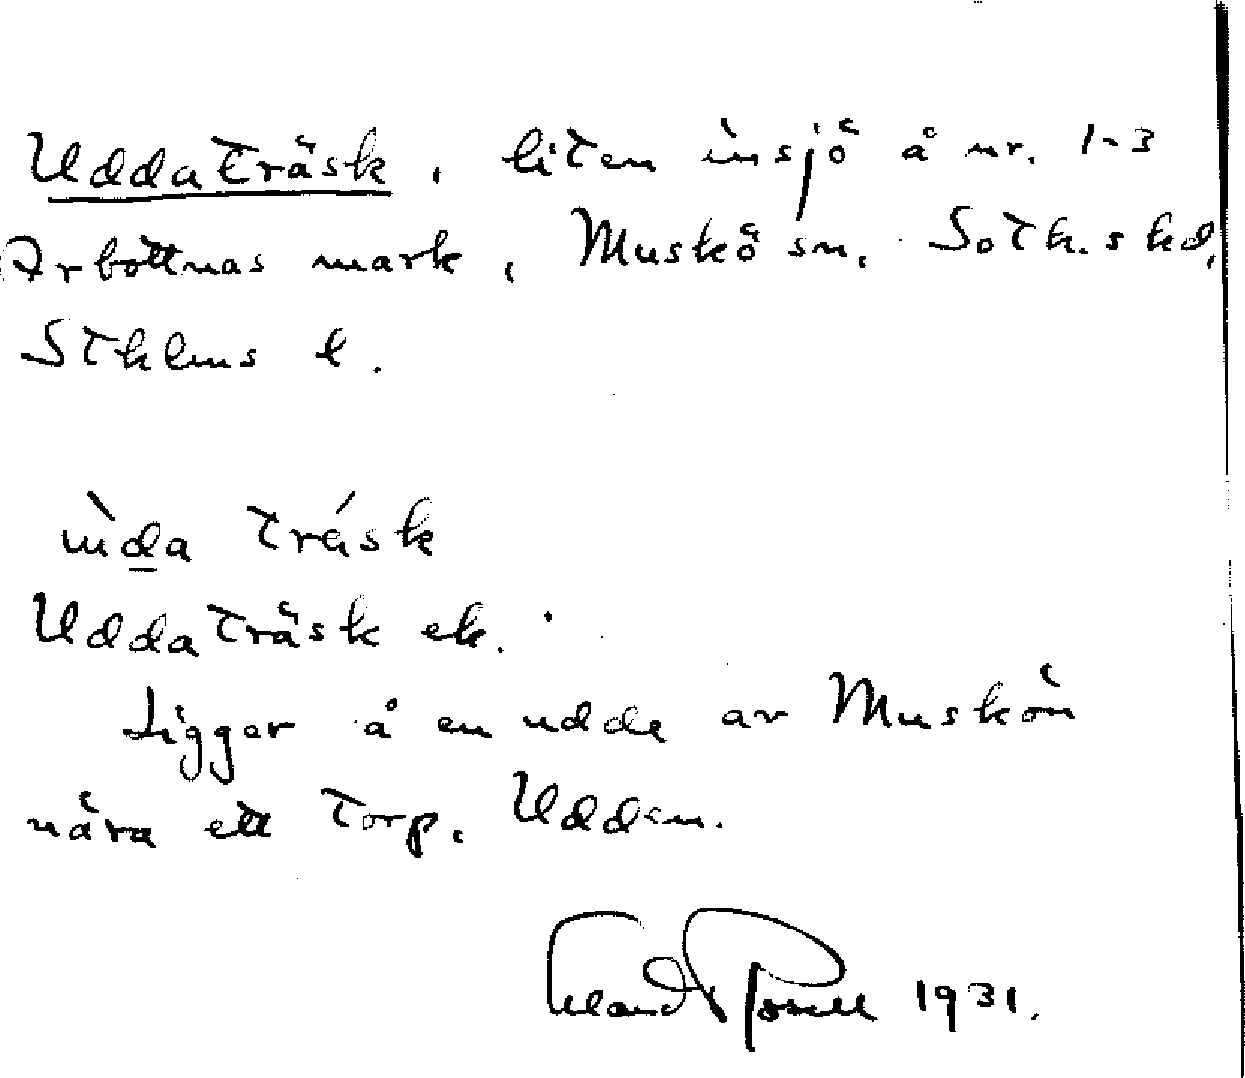 Uddaträsk, liten insjö å nr. 1-3
Arbottnas mark, Muskö sn, Soth. shd,
Sthlms l.
ùda trásk
Uddaträsk ek.
Ligger å en udde av Muskön
nära ett torp, Udden.
1931.